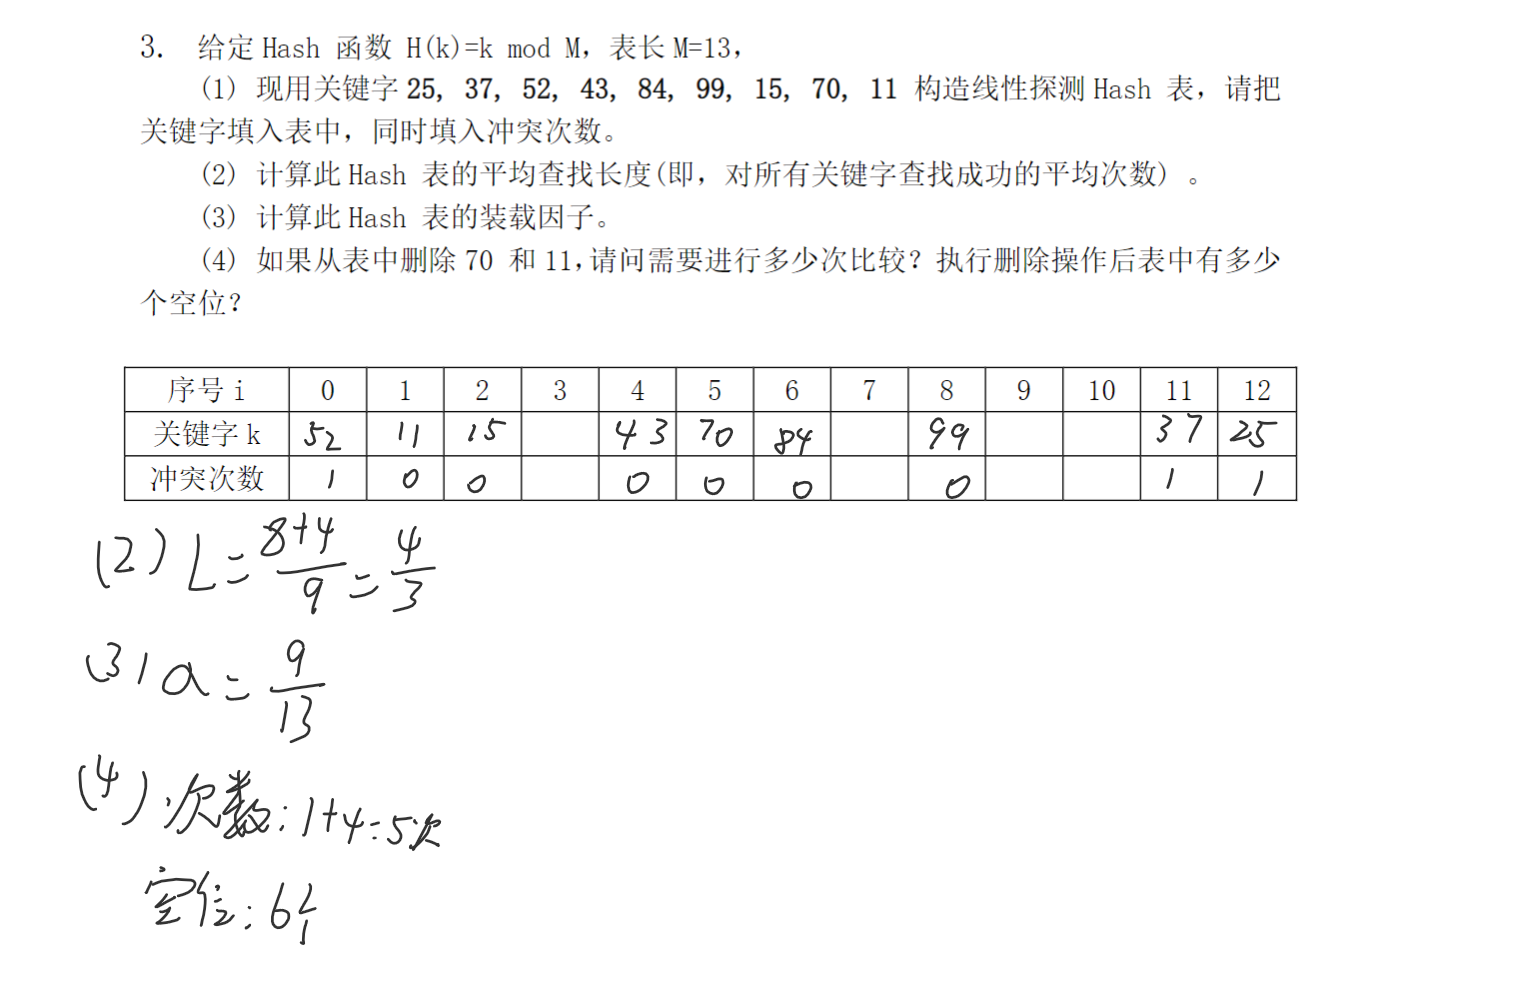 3. 给定Hash 函数 H(k)=k mod M，表长M=13，
(1) 现用关键字 25, 37, 52, 43, 84, 99, 15, 70, 11 构造线性探测Hash 表，请把
关键字填入表中，同时填入冲突次数。
(2) 计算此Hash 表的平均查找长度(即，对所有关键字查找成功的平均次数) 。
(3) 计算此Hash 表的装载因子。
(4) 如果从表中删除70 和11,请问需要进行多少次比较？执行删除操作后表中有多少
个空位？
序号i 0 1 2 3 4 5 6 7 8 9 10 11 12
关键字k 52 11 15 43 70 84 99 37 25
冲突次数 1 0 0 0 0 0 0 1 1
(2) L=(8+4)/9=4/3
(3) a=9/13
(4) 次数:1+4=5次
空位:6个